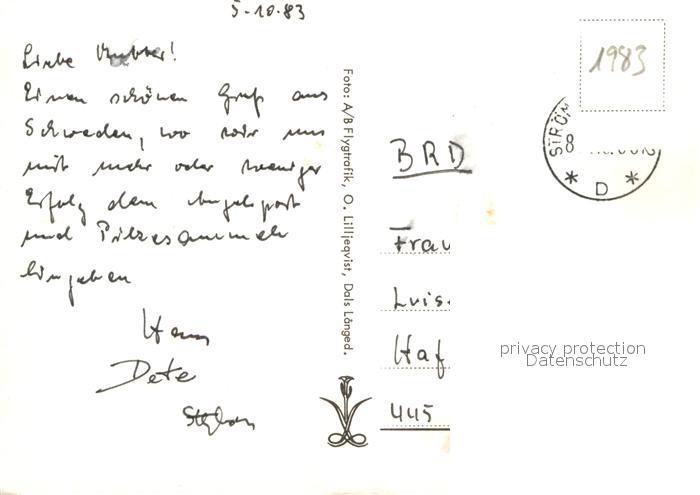 5-10-83
Liebe Mutter!
Einen schönen Gruß aus
Schweden, wo wir uns
mit mehr oder weniger
Erfolg dem Angelsport
und Pilzesammeln
hingeben
Hans
Dete
Stephan
Foto: A/B Flygtrafik, O. Lilljeqvist, Dals Långed.
1983
STRÖM
8
D
BRD
Frau
Luis
Haf
445
privacy protection
Datenschutz